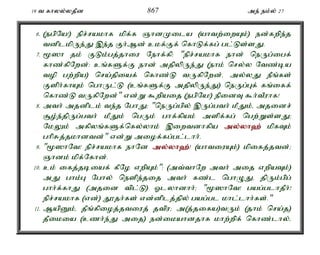 19 வகாலல்லதீன 867 அந் நம்ல் 27
6. (நபியே!) நிச்சயமாக மிக்க ஞானமுடைய (யாவற்றையும்) நன்கறிந்த
வனிடமிருந்து இந்த குர்ஆன் உமக்குக் கொடுக்கப் பட்டுள்ளது.
7. மூஸா தம் குடும்பத்தாரை நோக்கி: "நிச்சயமாக நான் நெருப்பைக்
காண்கிறேன்; உங்களுக்கு நான் அதிலிருந்து (நாம் செல்ல வேண்டிய
வழி பற்றிய) செய்தியைக் கொண்டு வருகிறேன்; அல்லது நீங்கள்
குளிர்காயும் பொருட்டு (உங்களுக்கு அதிலிருந்து) நெருப்புக் கங்கைக்
கொண்டு வருகிறேன்" என்று கூறியதை (நபியே!) நினைவு கூர்வீராக!
8. அவர் அதனிடம் வந்த போது: "நெருப்பில் இருப்பவர் மீதும், அதனைச்
சூழ்ந்திருப்பவர் மீதும் பெரும் பாக்கியம் அளிக்கப் பெற்றுள்ளது;
மேலும் அகிலங்களுக்கெல்லாம் இறைவனாகிய அல்லாஹ் மிகவும்
பரிசுத்தமானவன்" என்று அழைக்கப்பட்டார்.
9. "மூஸாவே! நிச்சயமாக நானே அல்லாஹ்! (யாவரையும்) மிகைத்தவன்;
ஞானம் மிக்கோன்.
10. உம் கைத்தடியைக் கீழே எறியும்"; (அவ்வாறே அவர் அதை எறியவும்)
அது பாம்பு போல் நெளிந்ததை அவர் கண்ட பொழுது, திரும்பிப்
பார்க்காது (அதனை விட்டு) ஓடலானார்; "மூஸாவே! பயப்படாதீர்!
நிச்சயமாக (என்) தூதர்கள் என்னிடத்தில் பயப்பட மாட்டார்கள்."
11. ஆயினும், தீங்கிழைத்தவரைத் தவிர; அ(த்தகைய)வரும் (தாம் செய்த)
தீமையை (உணர்ந்து அதை) நன்மையானதாக மாற்றிக் கொண்டால்,